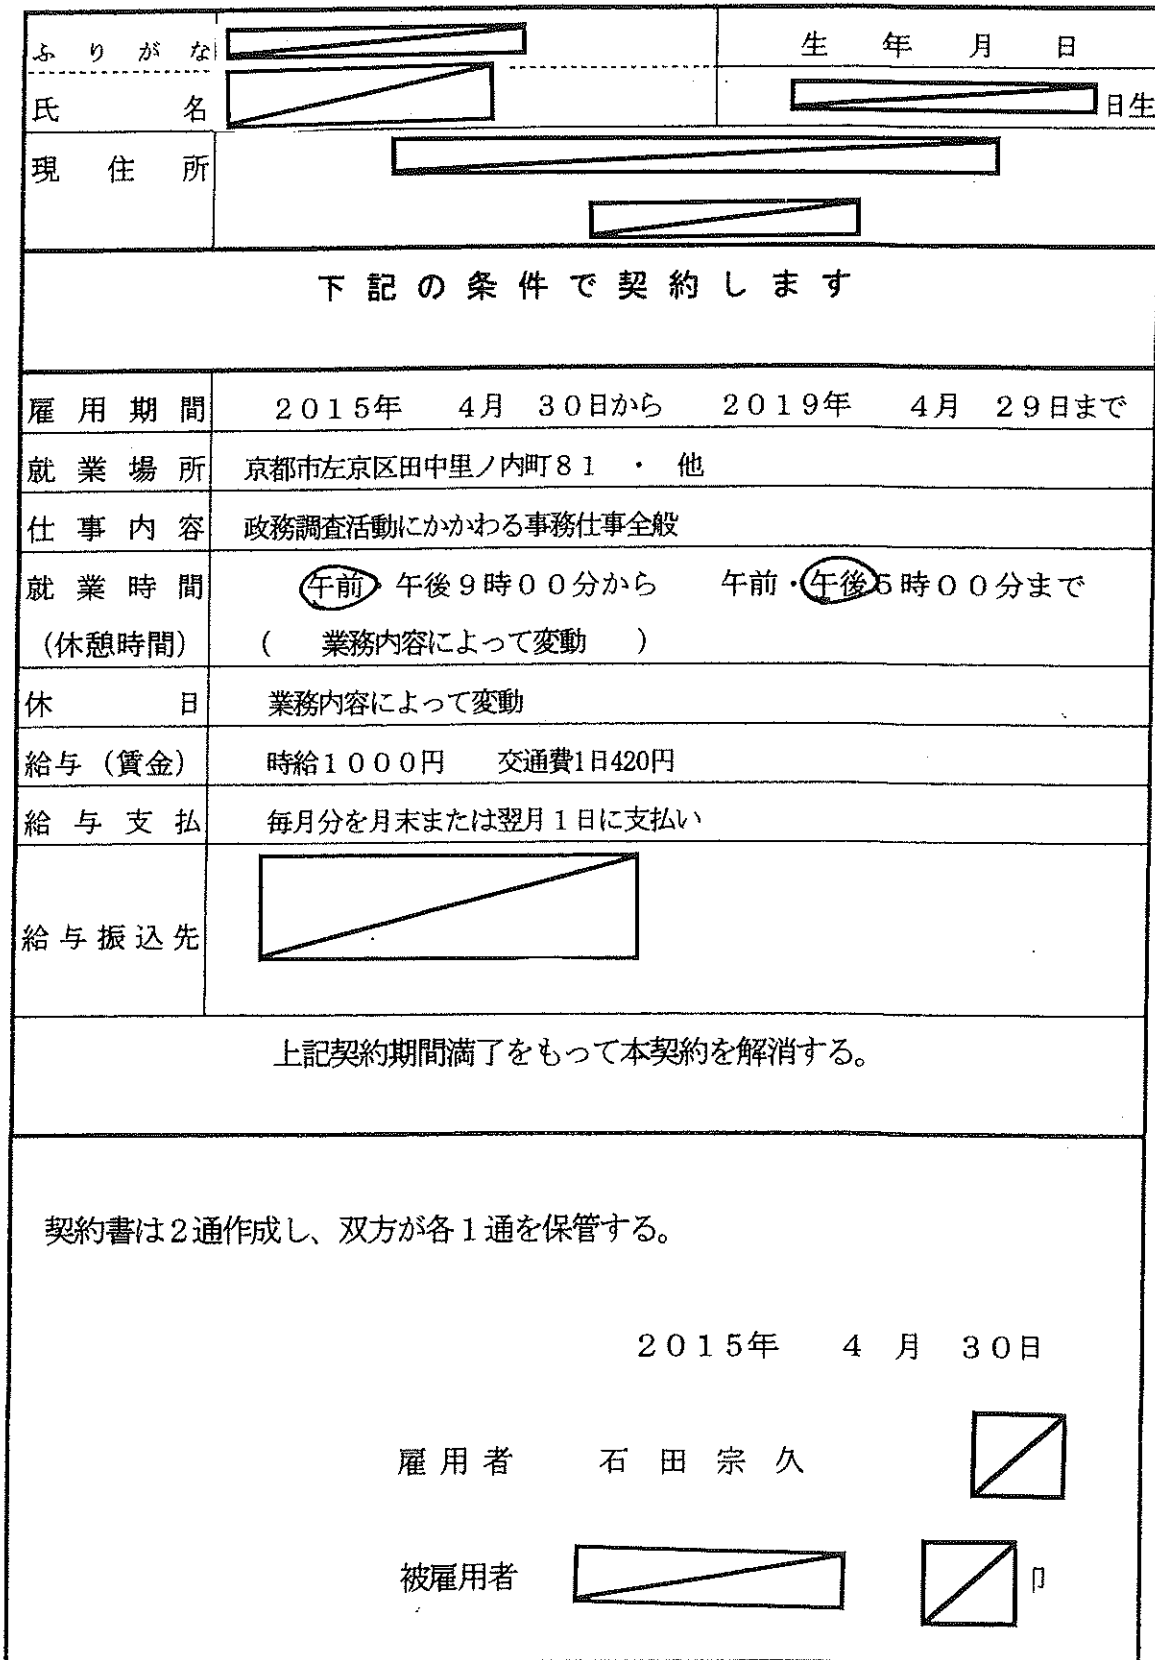 ふりがな
生年月日
氏名
日生
現住所
下記の条件で契約します
雇用期間 2015年 4月 30日から 2019年 4月 29日まで
就業場所 京都市左京区田中里ノ内町81 ・ 他
仕事内容 政務調査活動にかかわる事務仕事全般
就業時間 午前・午後9時00分から 午前・午後5時00分まで
(休憩時間) ( 業務内容によって変動 )
休日 業務内容によって変動
給与(賃金) 時給1000円 交通費1日420円
給与支払 毎月分を月末または翌月1日に支払い
給与振込先
上記契約期間満了をもって本契約を解消する。
契約書は2通作成し、双方が各1通を保管する。
2015年 4月 30日
雇用者 石田宗久
被雇用者